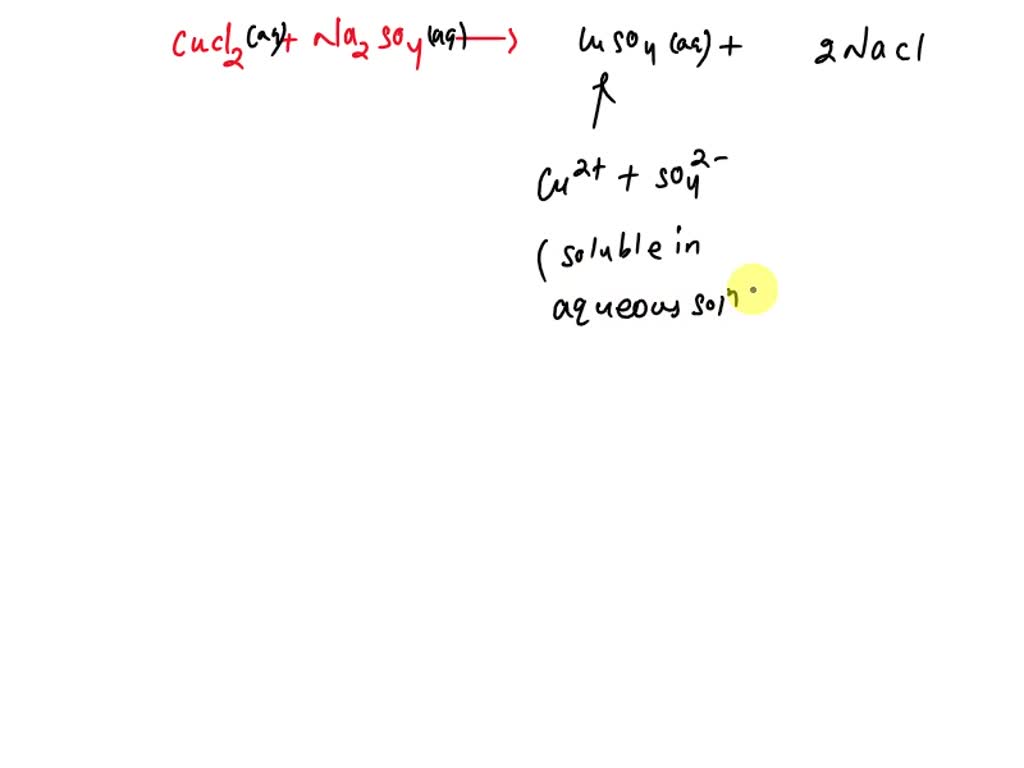 CuCl₂(aq) + Na₂SO₄(aq) ⟶ CuSO₄(aq) + 2NaCl
↑
Cu²⁺ + SO₄²⁻
(soluble in
aqueous solⁿ